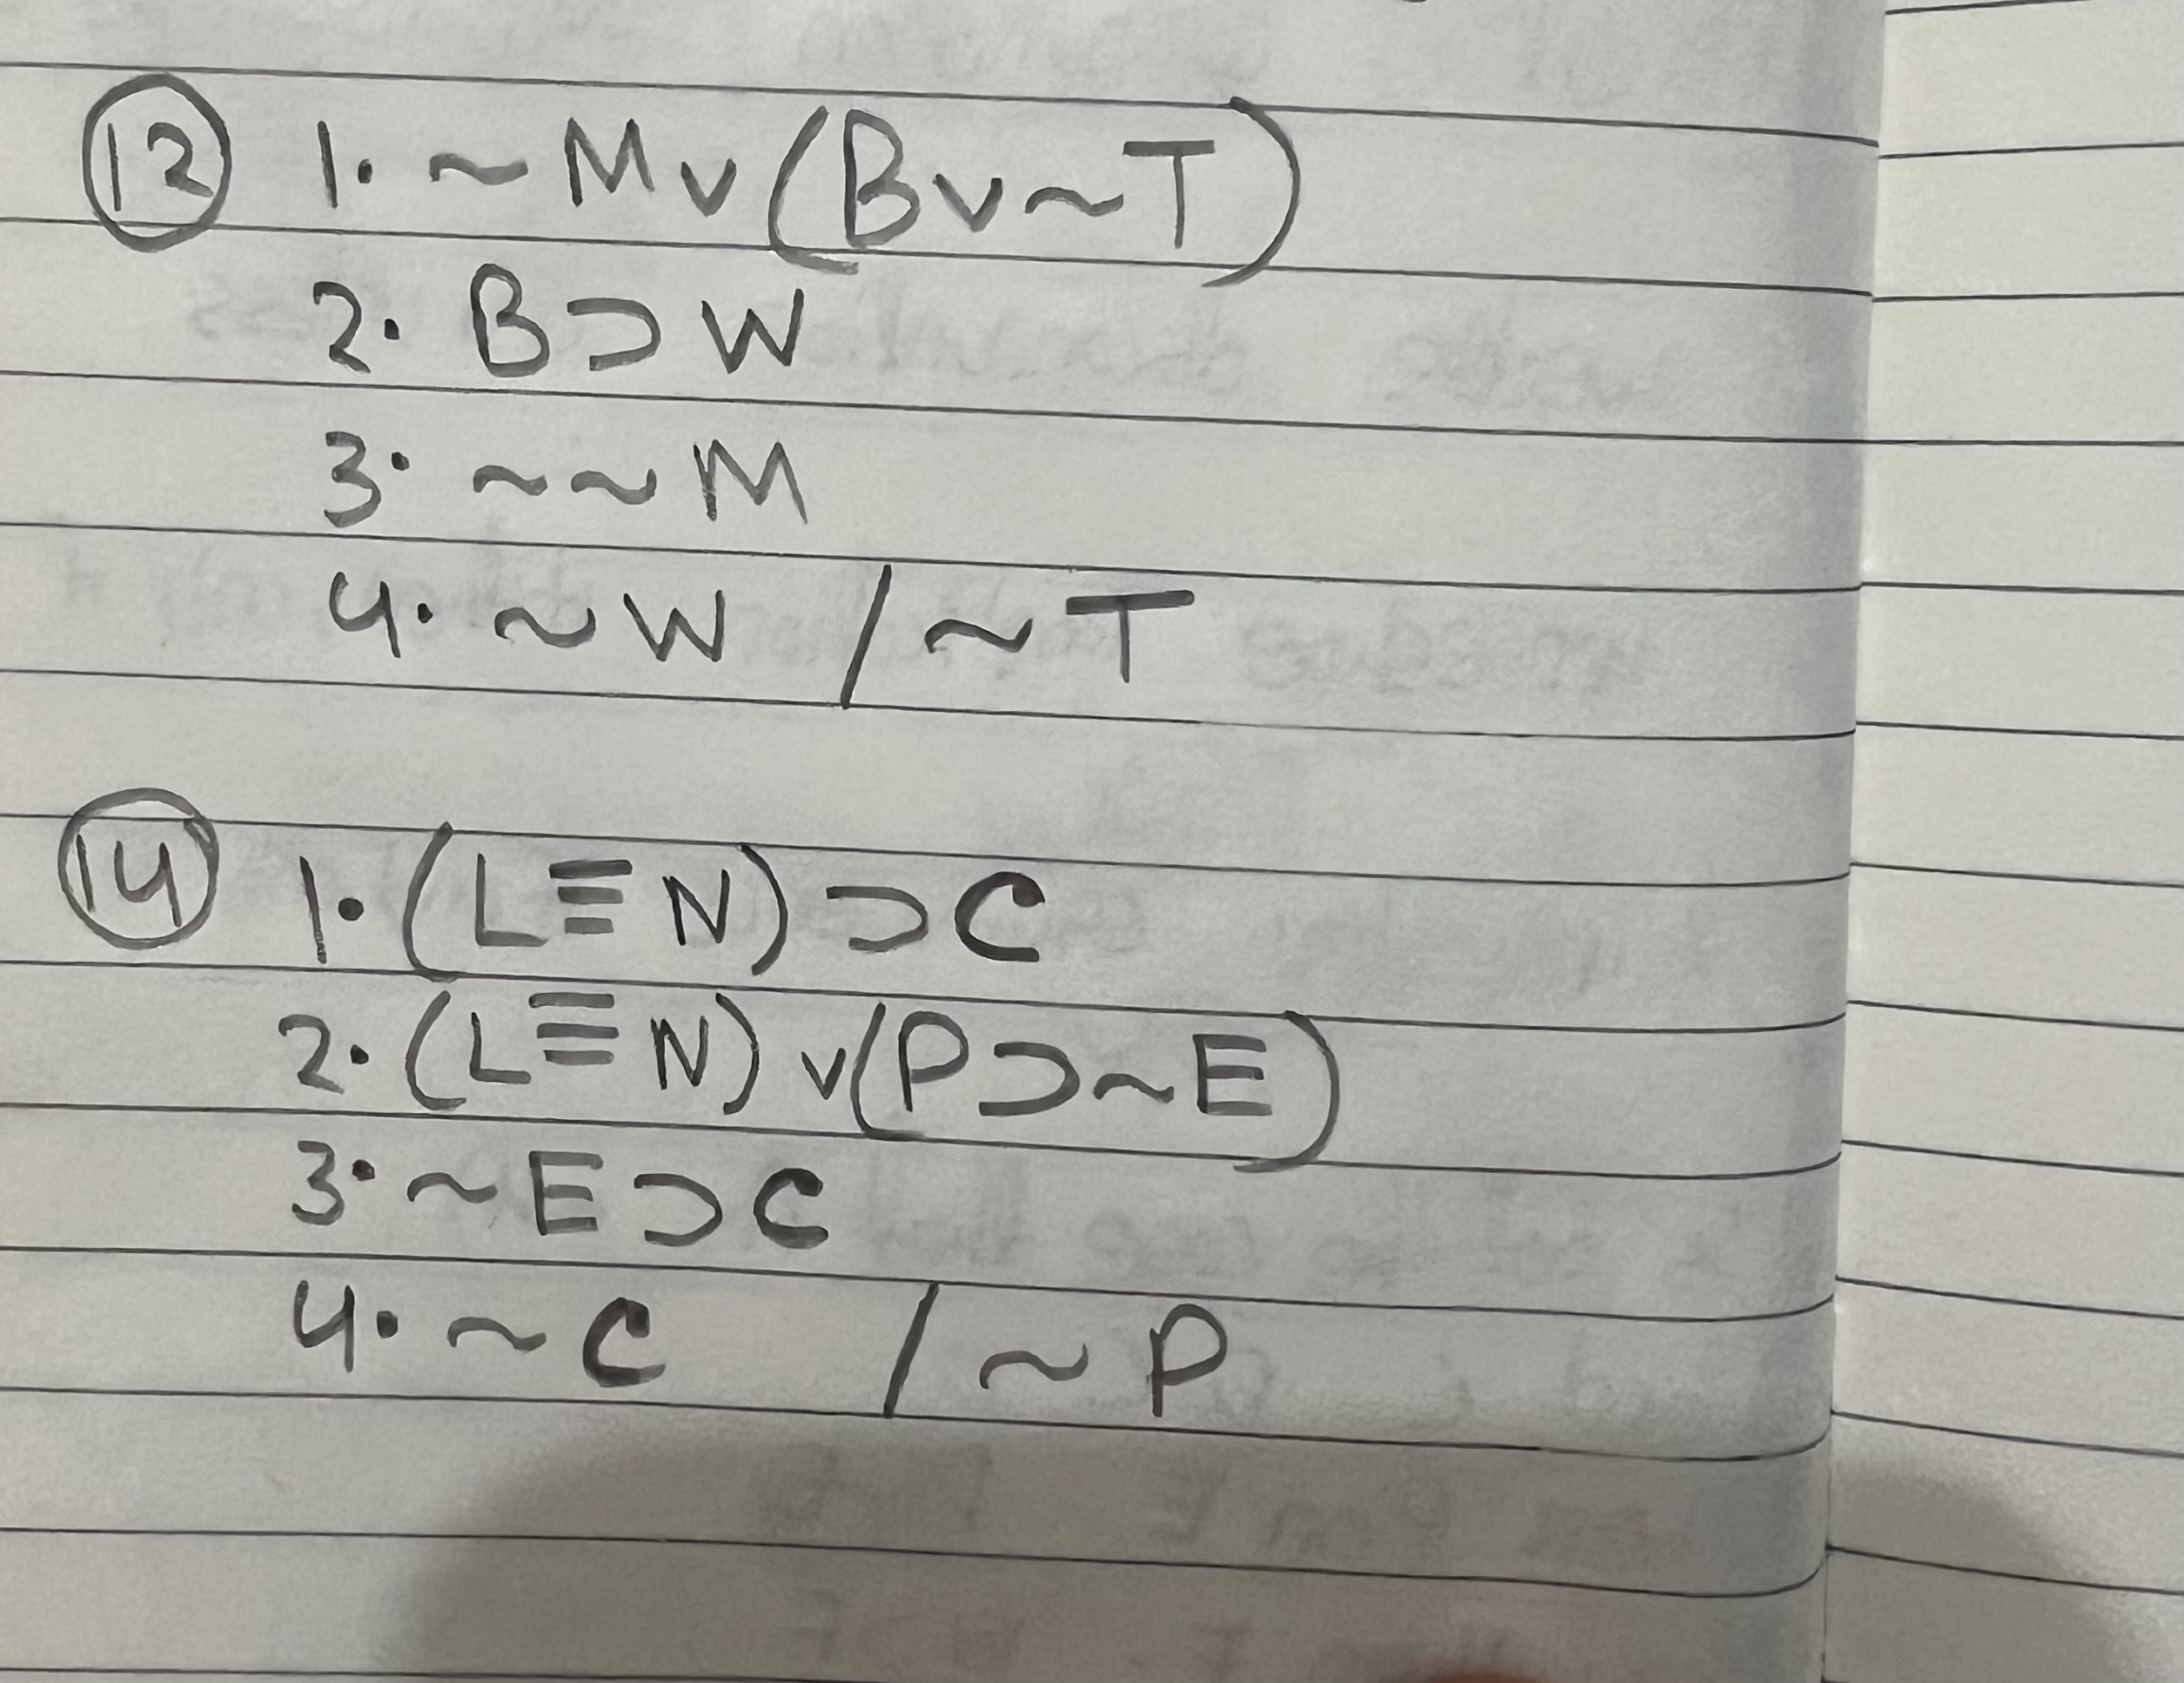 12 1. ~M v (B v ~T)
2. B ⊃ W
3. ~~M
4. ~W / ~T
14 1. (L ≡ N) ⊃ C
2. (L ≡ N) v (P ⊃ ~E)
3. ~E ⊃ C
4. ~C / ~P